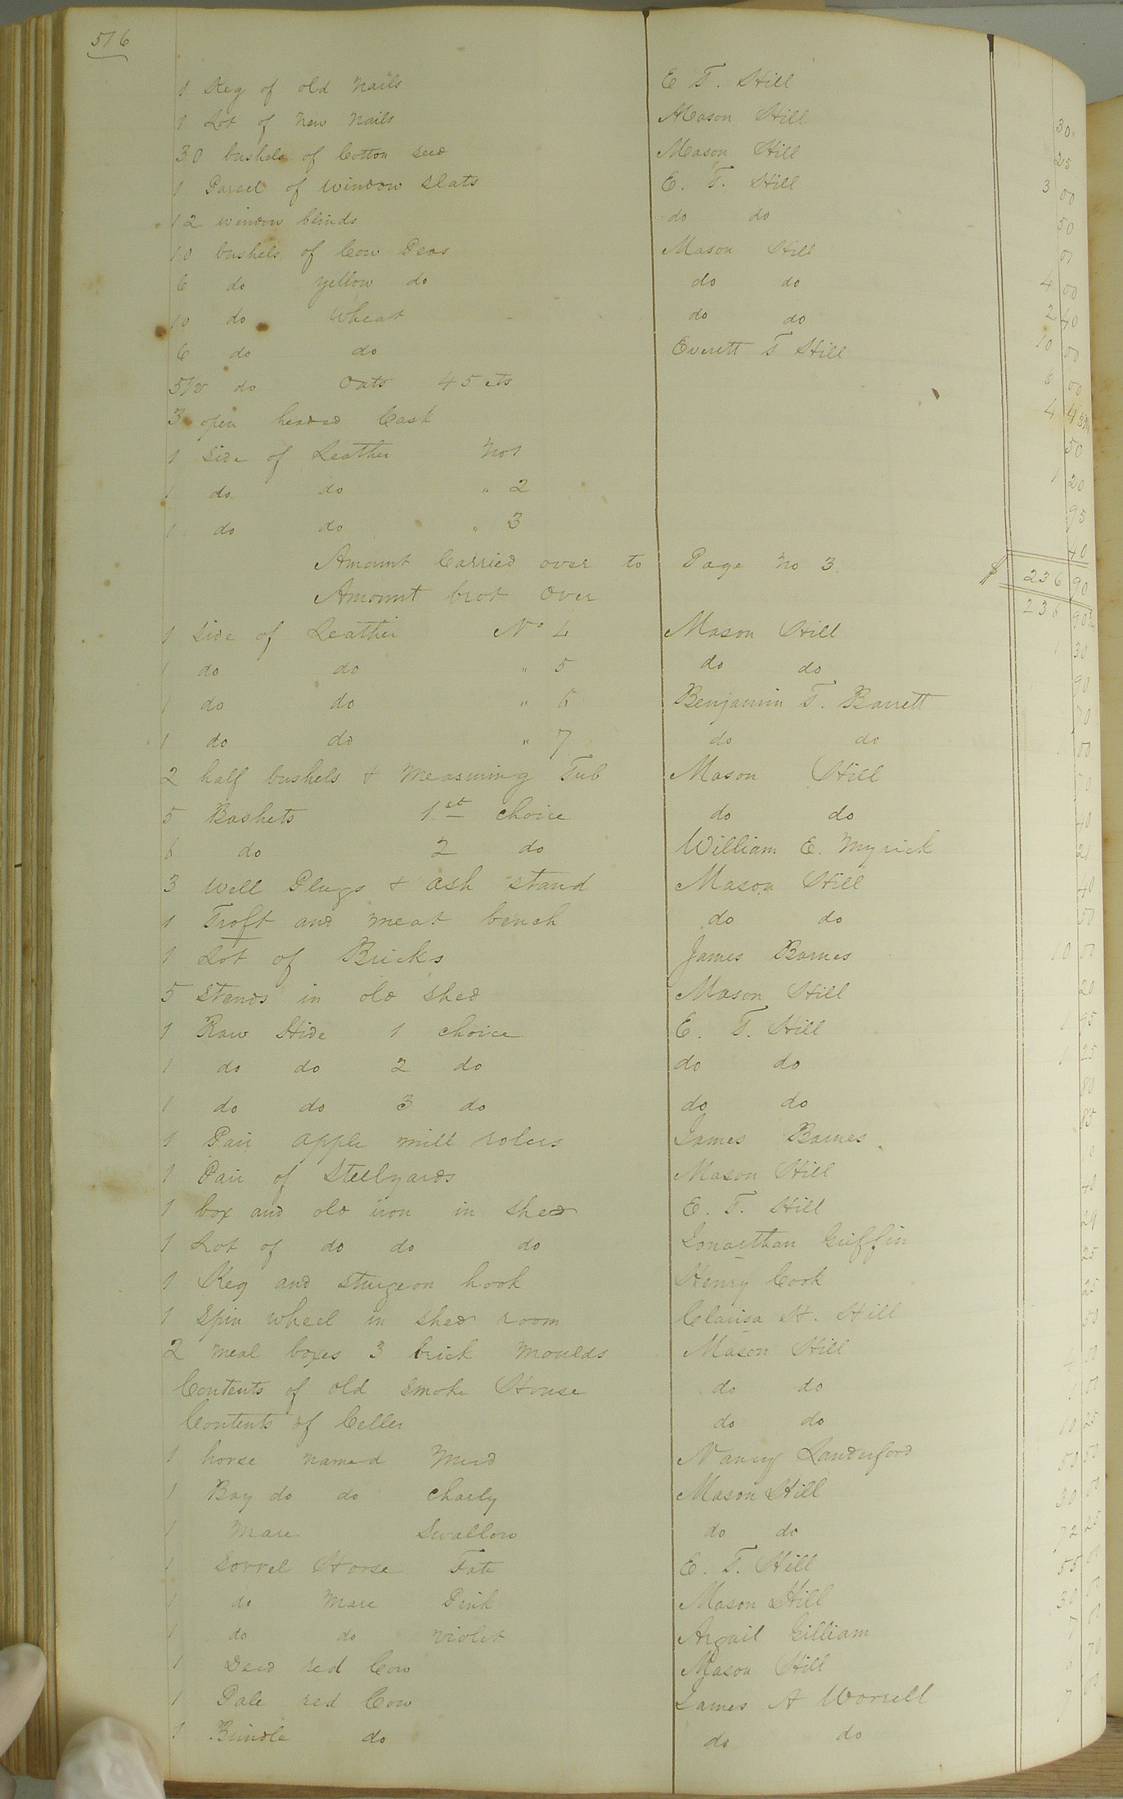 516
1 Keg of old Nails E T. Hill
1 Lot of New Nails Mason Hill 30
30 bushels of Cotton seed Mason Hill 25
1 Parcel of window slats E. T. Hill 3 00
12 window blinds do do 50
10 bushels of Cow Peas Mason Hill
6 do yellow do do do 4 00
10 do Wheat do do 2 40
6 do do Everett T Hill 10 00
do Oats 45 cts 6 00
3 open headed Cask 4
1 Side of Leather No 1 50
1 do do " 2 1 20
1 do do " 3 95
Amount Carried over to Page No 3. $ 236 90
Amount brot Over 236 90
1 Side of Leather No 4 Mason Hill 1 30
1 do do " 5 do do 90
1 do do " 6 Benjamin T. Barrett 70
1 do do " 7 do do 00
2 half bushels & Measuring Tub Mason Hill
5 Baskets 1st choice do do 40
6 do 2 do William E. Myrick
3 Well Plugs & Ash Stand Mason Hill 40
1 Troft and meat bench do do 50
1 Lot of Bricks James Barnes 10 50
5 Stands in old shed Mason Hill 20
1 Raw Hide 1 choice E. T. Hill 1 95
1 do do 2 do do do 1 25
1 do do 3 do do do 80
1 Pair apple mill rolers James Barnes 85
1 Pair of Steelyards Mason Hill
1 box and old iron in shed E. T. Hill
1 Lot of do do do Jonaithan Griffin
1 Keg and sturgeon hook Henry Cook 25
1 Spin wheel in shed room Clarisa H. Hill 25
2 meal boxes 3 brick moulds Mason Hill 50
Contents of old smoke House do do
Contents of Celler do do
1 horse named Murd Nancy Landerford 10 25
1 Bay do do Charly Mason Hill 50
1 Mare Swallow do do 30
1 Sorrel Horse Fate E. T. Hill 72 25
1 do Mare Pink Mason Hill 55
1 do do violet Argail Gilliam 30
1 Deed red Cow Mason Hill 7
1 Pale red Cow James A Worrell
1 Brindle do do do 7